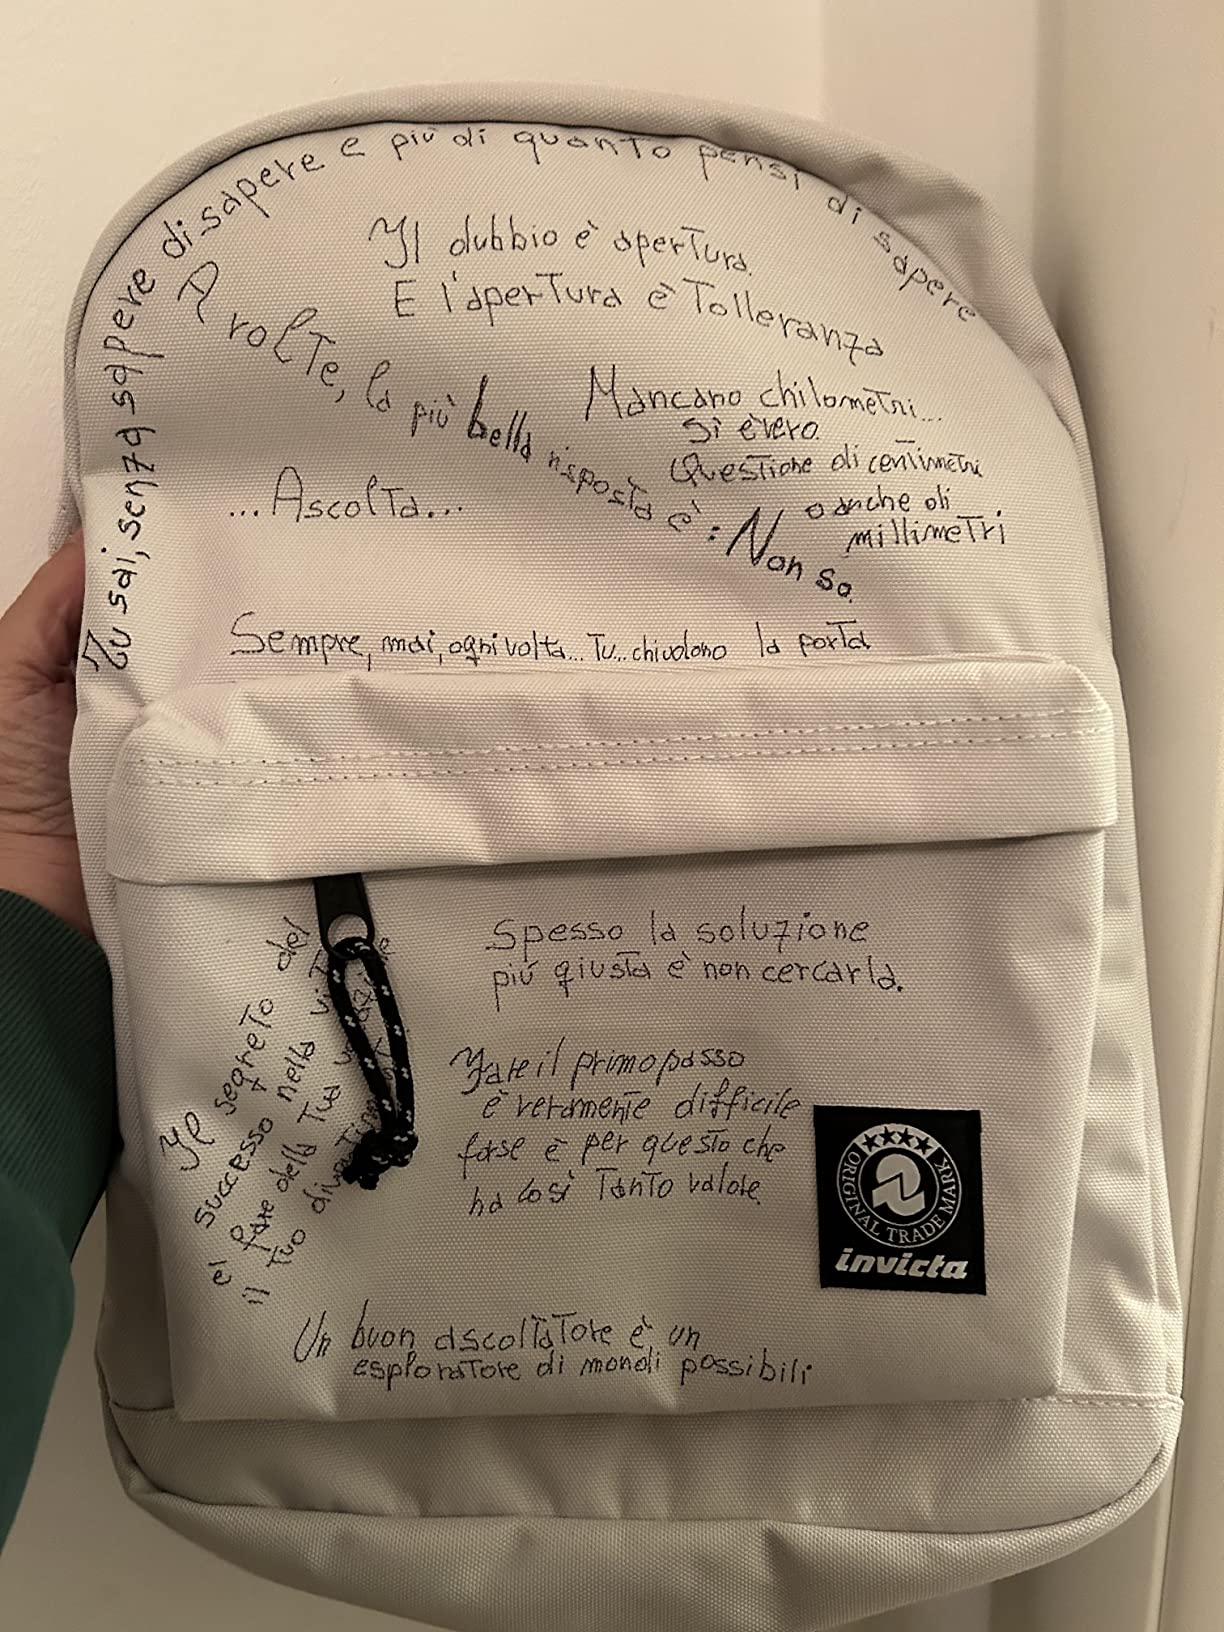 Tu sai, senza sapere di sapere e più di quanto pensi di sapere
Il dubbio è apertura.
E l'apertura è Tolleranza
A volte, la più bella risposta è: Non so.
Mancano chilometri...
Sì è vero.
Questione di centimetri
o anche di
millimetri
...Ascolta...
Sempre, mai, ogni volta... Tu... chiudono la porta
Il segreto del
successo nella
è fare della Tua
il Tuo
Spesso la soluzione
più giusta è non cercarla.
Fare il primo passo
è veramente difficile
forse è per questo che
ha così Tanto valore.
ORIGINAL TRADE MARK
invicta
Un buon ascoltatore è un
esploratore di mondi possibili